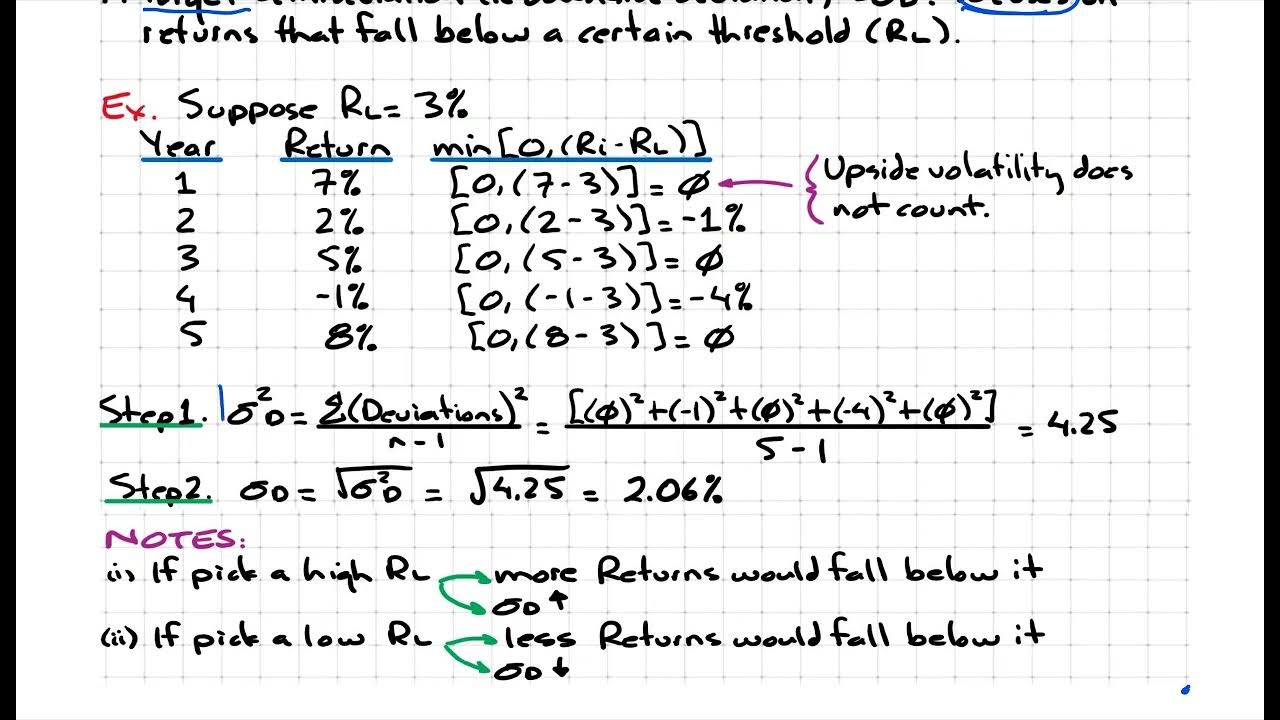 returns that fall below a certain threshold (RL).
Ex. Suppose RL = 3%
Year Return min[0,(Ri-RL)]
1 7% [0,(7-3)] = ∅
2 2% [0,(2-3)] = -1%
3 5% [0,(5-3)] = ∅
4 -1% [0,(-1-3)] = -4%
5 8% [0,(8-3)] = ∅
{Upside volatility does
not count.
Step1. σ²D = Σ(Deviations)² / n-1 = [(∅)²+(-1)²+(∅)²+(-4)²+(∅)²] / 5-1 = 4.25
Step2. σD = √σ²D = √4.25 = 2.06%
NOTES:
(i) If pick a high RL → more Returns would fall below it
→ σD ↑
(ii) If pick a low RL → less Returns would fall below it
→ σD ↓